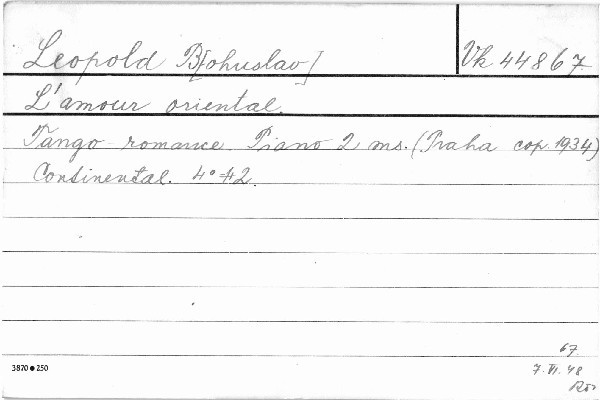 Leopold B[ohuslav] Vk 44867
L'amour oriental.
Tango-romance. Piano 2 ms. (Praha cop. 1934)
Continental. 4°
67.
3870 ● 250
7. VI. 48